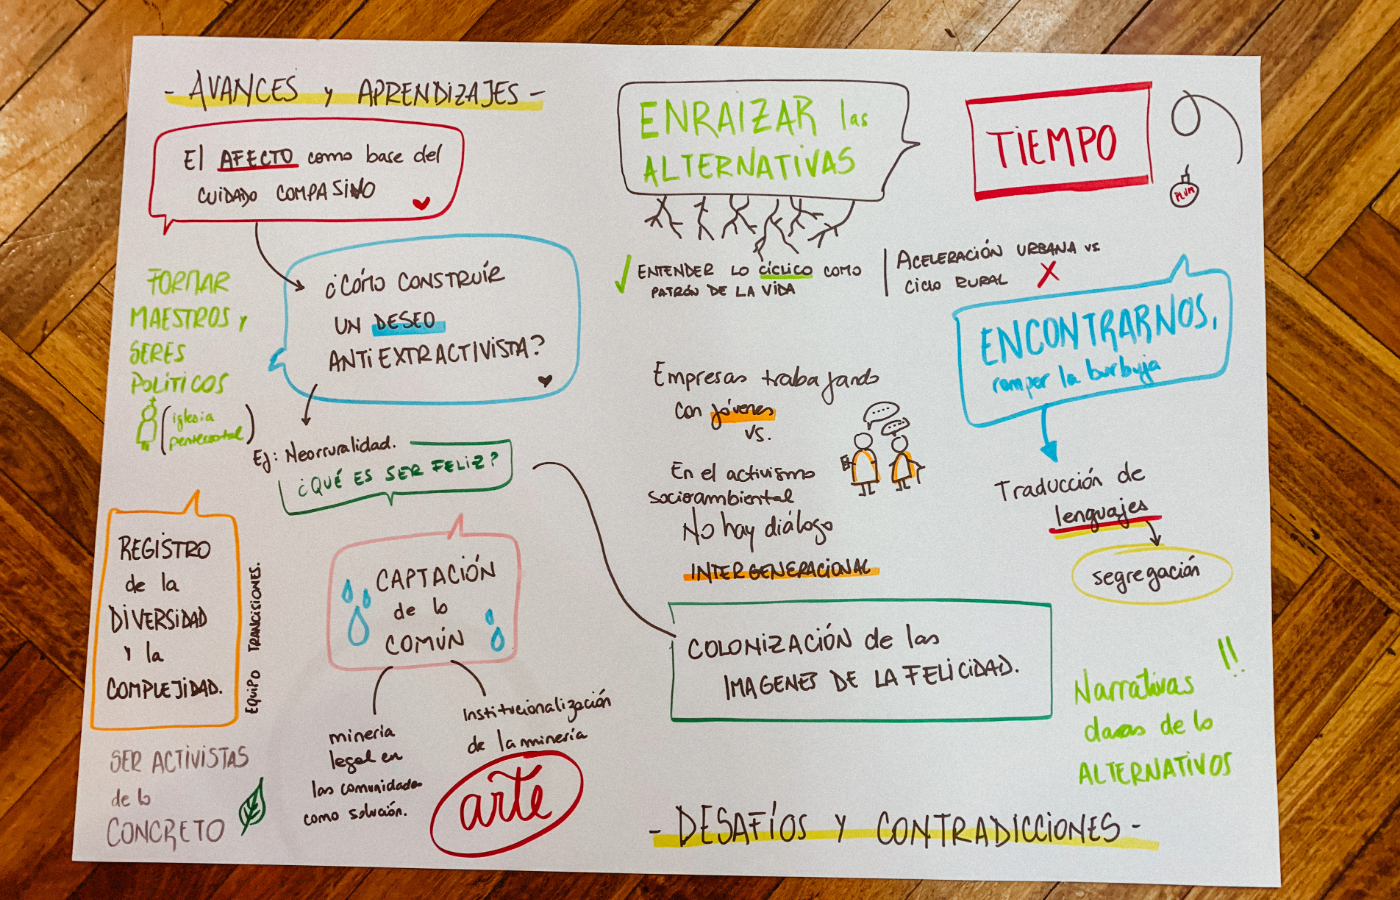 - AVANCES y APRENDIZAJES -
El AFECTO como base del
CUIDADO COMPASIVO
¿CÓMO CONSTRUIR
UN DESEO
ANTIEXTRACTIVISTA?
FORMAR
MAESTROS Y
SERES
POLÍTICOS
(iglesia
pentecostal)
Ej: Neorruralidad.
¿QUÉ ES SER FELIZ?
REGISTRO
de la
DIVERSIDAD
Y la
COMPLEJIDAD.
EQUIPO TRANCISIONES.
CAPTACIÓN
de lo
COMÚN
minería
legal en
las comunidades
como solución.
Institucionalización
de la minería
SER ACTIVISTAS
de lo
CONCRETO
arte
ENRAIZAR las
ALTERNATIVAS
ENTENDER LO CÍCLICO COMO
PATRÓN DE LA VIDA
TIEMPO
PLUM
ACELERACIÓN URBANA VS
Ciclo RURAL X
ENCONTRARNOS,
romper la burbuja
Empresas trabajando
con jóvenes
vs.
En el activismo
socioambiental
No hay diálogo
INTERGENERACIONAL
Traducción de
lenguajes
segregación
COLONIZACIÓN de las
IMAGENES DE LA FELICIDAD.
Narrativas !!
de lo
ALTERNATIVOS
- DESAFÍOS Y CONTRADICCIONES -